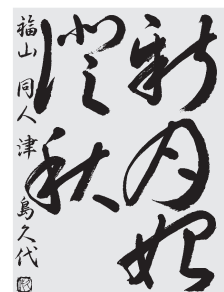 新月始
澄秋
福山 同人 津島久代